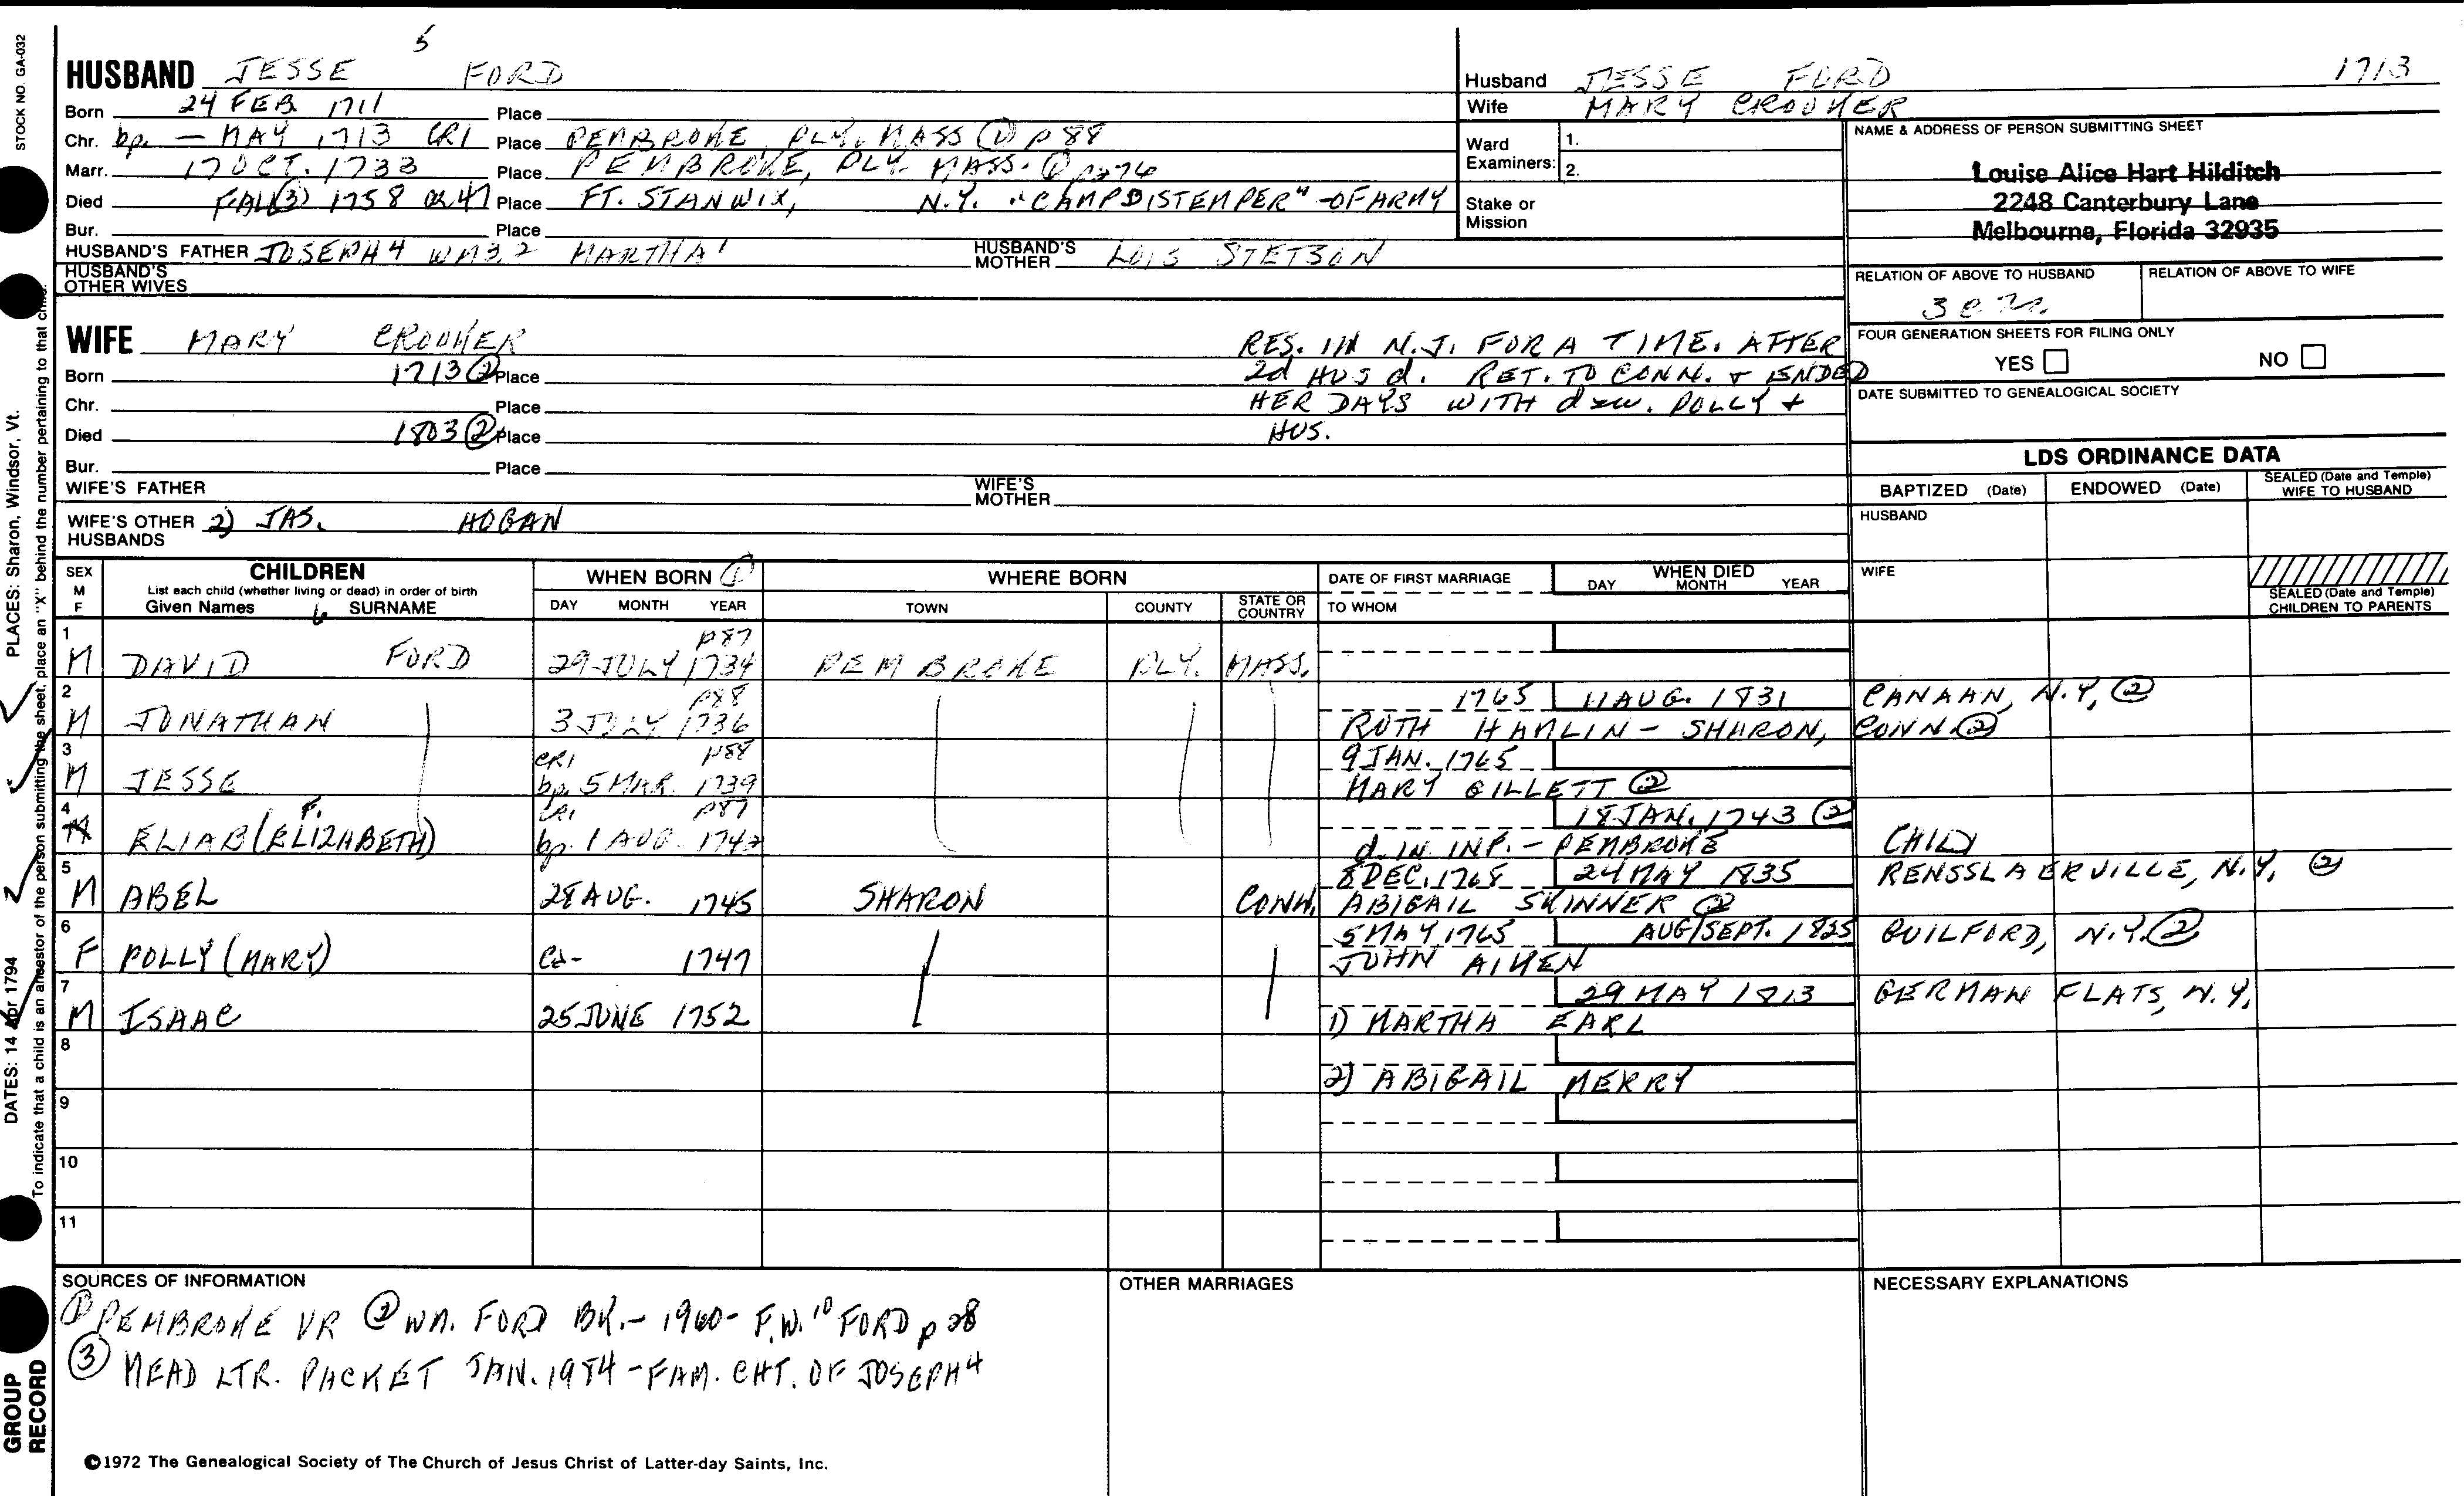 5
HUSBAND JESSE FORD
Born 24 FEB 1711 Place
Chr. bp. — MAY 1713 CR1 Place PEMBROKE, PLY. MASS ① p 88
Marr. 17 OCT. 1733 Place PEMBROKE, PLY. MASS. ①
Died FALL ③ 1758 OR 47 Place FT. STANWIX, N.Y. "CAMP DISTEMPER" - OF ARMY
Bur. Place
HUSBAND'S FATHER JOSEPH 4 WM 3, 2 MARTHA 1 HUSBAND'S MOTHER LOIS STETSON
HUSBAND'S OTHER WIVES
Husband JESSE FORD 1713
Wife MARY CROOKER
Ward Examiners: 1.
2.
Stake or Mission
NAME & ADDRESS OF PERSON SUBMITTING SHEET
Louise Alice Hart Hilditch
2248 Canterbury Lane
Melbourne, Florida 32935
RELATION OF ABOVE TO HUSBAND RELATION OF ABOVE TO WIFE
FOUR GENERATION SHEETS FOR FILING ONLY
YES NO
DATE SUBMITTED TO GENEALOGICAL SOCIETY
WIFE MARY CROOKER
Born 1713 ② Place
Chr. Place
Died 1803 ② Place
Bur. Place
RES. IN N.J. FOR A TIME. AFTER
2d HUS d. RET. TO CONN. + ENDED
HER DAYS WITH dau. POLLY +
HUS.
WIFE'S FATHER WIFE'S MOTHER
WIFE'S OTHER HUSBANDS 2) JAS. HOGAN
LDS ORDINANCE DATA
BAPTIZED (Date) ENDOWED (Date) SEALED (Date and Temple) WIFE TO HUSBAND
HUSBAND
WIFE
SEALED (Date and Temple) CHILDREN TO PARENTS
SEX M F
CHILDREN
List each child (whether living or dead) in order of birth
Given Names 6 SURNAME
WHEN BORN ①
DAY MONTH YEAR
WHERE BORN
TOWN COUNTY STATE OR COUNTRY
DATE OF FIRST MARRIAGE
TO WHOM
WHEN DIED
DAY MONTH YEAR
1 M DAVID FORD 29 JULY 1734 p87 PEMBROKE PLY. MASS.
2 M JONATHAN 3 JULY 1736 p88 1765 11 AUG. 1831 CANAAN, N.Y. ②
RUTH HAMLIN - SHARON, CONN. ②
3 M JESSE CR1 bp. 5 MAR. 1739 p88 9 JAN. 1765
MARY GILLETT ②
4 F. ELIAB (ELIZABETH) CR1 bp. 1 AUG. 1742 p87 18 JAN. 1743 ②
d. IN INF. - PEMBROKE CHILD
5 M ABEL 28 AUG. 1745 SHARON CONN. 8 DEC. 1768 24 MAY 1835 RENSSLAERVILLE, N.Y. ②
ABIGAIL SKINNER ②
6 F POLLY (MARY) ca- 1747 5 MAY 1765 AUG/SEPT. 1825 GUILFORD, N.Y. ②
JOHN AIKEN
7 M ISAAC 25 JUNE 1752 29 MAY 1813 GERMAN FLATS, N.Y.
1) MARTHA EARL
8
2) ABIGAIL MERRY
9
10
11
SOURCES OF INFORMATION
① PEMBROKE VR ② WM. FORD BK. - 1960 - F.W. 10 FORD p 28
③ MEAD LTR. PACKET JAN. 1984 - FAM. CHT. OF JOSEPH 4
OTHER MARRIAGES
NECESSARY EXPLANATIONS
©1972 The Genealogical Society of The Church of Jesus Christ of Latter-day Saints, Inc.
STOCK NO. GA-032
PLACES: Sharon, Windsor, Vt.
DATES: 14 Apr 1794
To indicate that a child is an ancestor of the person submitting the sheet, place an "X" behind the number pertaining to that child.
GROUP RECORD